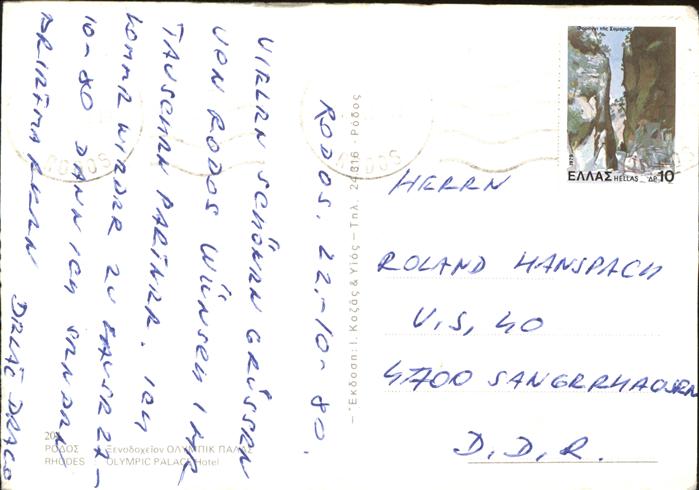 RODOS. 22.-10-80.
VIELEN SCHÖNEN GRÜSSEN
VON RODOS WÜNSCH IHR
TAUSCHEN PARTNER. ICH
KOMME WIEDER ZU HAUSE 27-
10-80 DANN ICH SENDEN
BRIEFMARKEN
DRAGO
Φαράγγι της Σαμαριάς
1979
ΕΛΛΑΣ HELLAS ΔΡ 10
RODOS
RODOS
HERRN
ROLAND HANSPACH
V.S, 40
4700 SANGERHAUSEN
D. D. R.
– Έκδοση: Ι. Κοζάς & Υιός – Τηλ. 24 816 - Ρόδος
ΡΟΔΟΣ Ξενοδοχείον ΟΛΥΜΠΙΚ ΠΑΛΑΣ
RHODES OLYMPIC PALACE Hotel